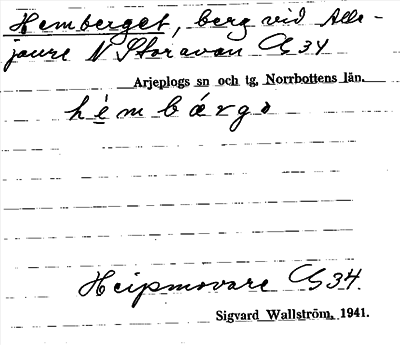 Hemberget, berg vid Alle-
jaure N Storavan G34
Arjeplogs sn och tg, Norrbottens län.
hèmbárgə
Heipmovare G34.
Sigvard Wallström, 1941.